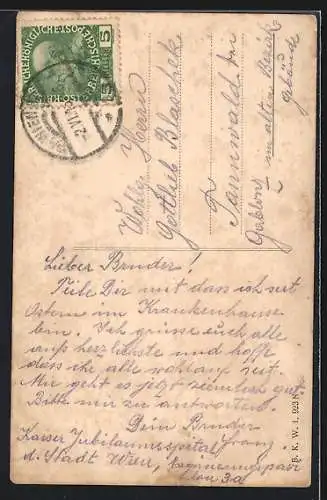 Wohlg. Herrn
Gottlieb Blaschek
in
Tannwald
Gablonz im alten Bezirk
gebäude
Lieber Bruder!
Teile Dir mit dass ich seit
Ostern im Krankenhause
bin. Ich grüsse euch alle
aufs herzlichste und hoffe
dass ihr alle wohlauf seit.
Mir geht es jetzt ziemlich gut
Bitte mir zu antworten.
Dein Bruder
Franz
Kaiser Jubiläumsspital
d. Stadt Wien,
3a
B. K. W. I. 923
5